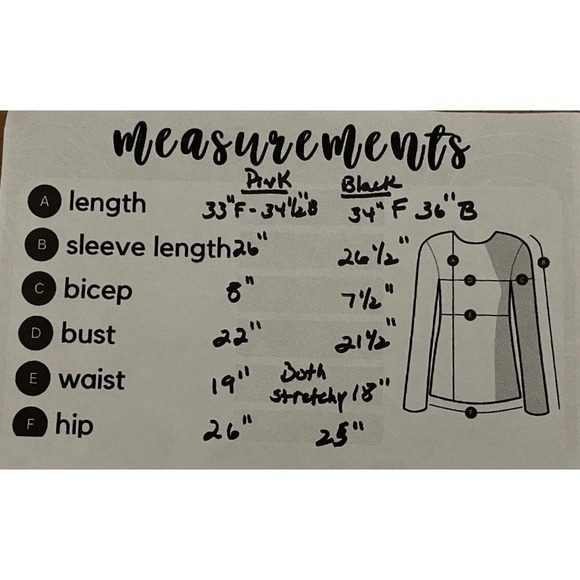 measurements
Pink Black
A length 33"F - 34 1/2"B 34" F 36" B
B sleeve length 26" 26 1/2"
C bicep 8" 7 1/2"
D bust 22" 21 1/2"
E waist 19" Both stretchy 18"
F hip 26" 25"
A
B
D
C
E
F